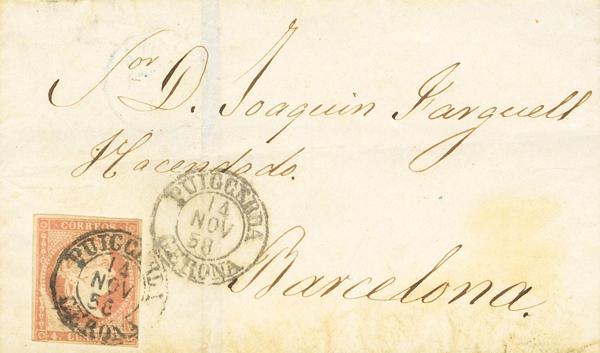 Sor D. Joaquin Farguell
Hacendado.
PUIGCERDA
14
NOV
58
GERONA
Barcelona.
CORREOS
PUIGCERDA
14
NOV
58
GERONA
4.